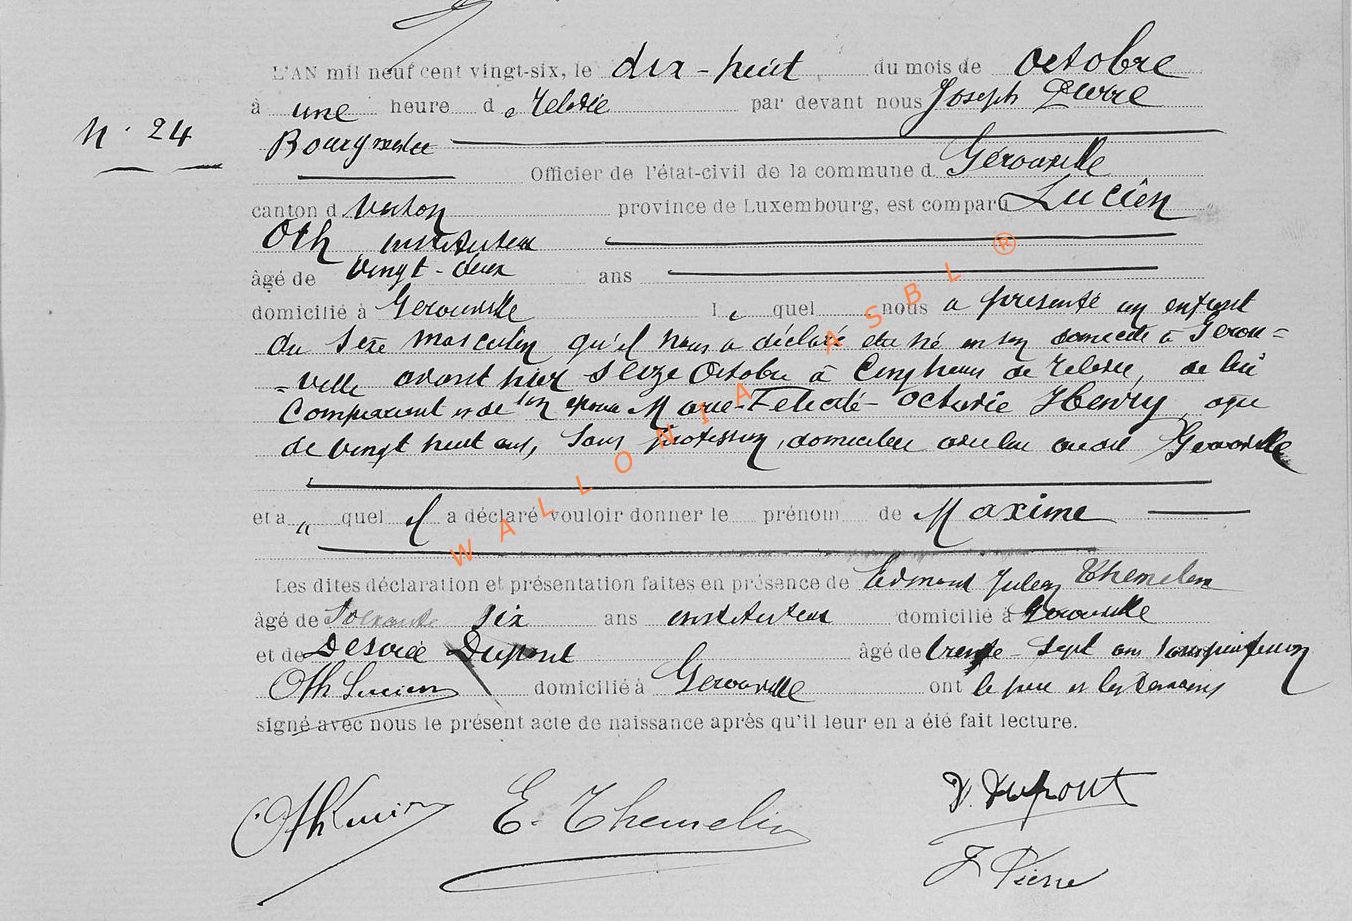 L'AN mil neuf cent vingt-six, le dix-huit du mois de Octobre
à une heure de Relevée par devant nous Joseph Pierre
N° 24
Bourgmestre
Officier de l'état-civil de la commune d Gérouville
canton d Virton province de Luxembourg, est comparu Lucien
Oth instituteur
âgé de vingt-deux ans
domicilié à Gérouville Le quel nous a présenté un enfant
du sexe masculin qu'il nous a déclaré être né en son domicile à Gérou=
=ville avant hier seize Octobre à cinq heures de Relevée, de lui
Comparant et de son épouse Marie-Félicité-Octavie Henry, agée
de vingt huit ans, sans profession, domiciliée avec lui audit Gérouville
et a u quel il a déclaré vouloir donner le prénom de Maxime
Les dites déclaration et présentation faites en présence de Edmond Julien Themelin
âgé de Soixante six ans instituteur domicilié à Gérouville
et de Désiré Dupont âgé de trente-sept ans sans profession
Oth Lucien domicilié à Gérouville ont le père et les témoins
signé avec nous le présent acte de naissance après qu'il leur en a été fait lecture.
Oth Lucien E. Themelin D. Dupont
J Pierre
WALLONIA ASBL ®